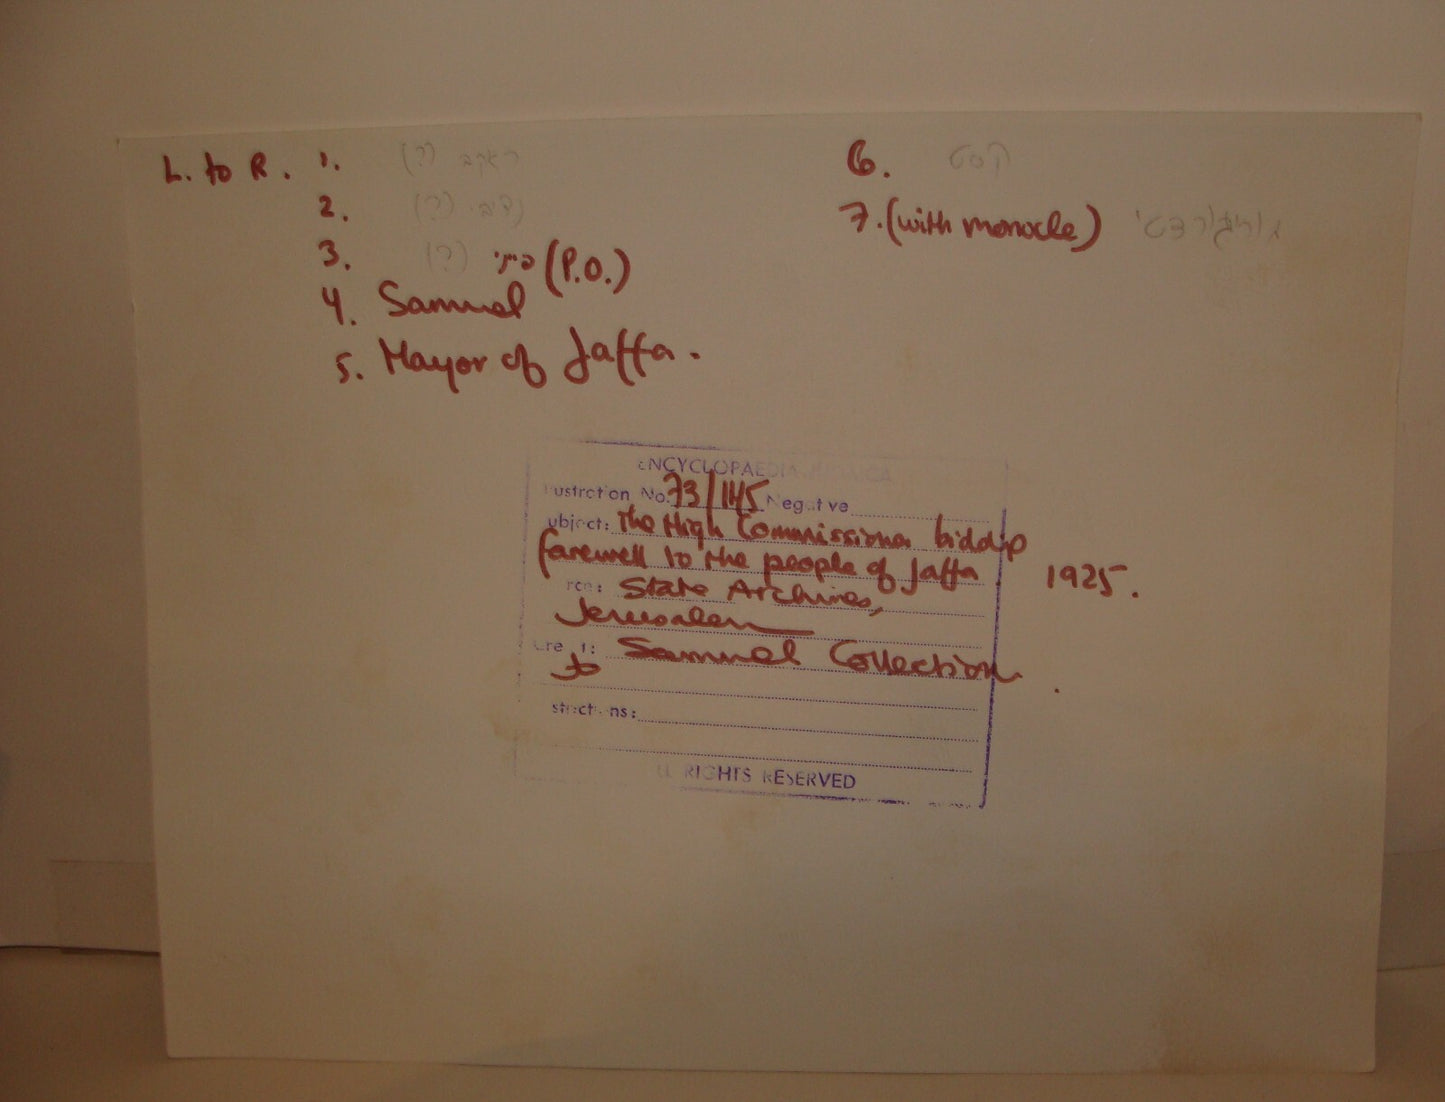 L. to R. 1. (?)
2. (?)
3. (?) (P.O.)
4. Samuel
5. Mayor of Jaffa.
6. קסט
7. (with monocle)
ENCYCLOPAEDIA JUDAICA
ustration No. 73/145 Negative
ubject: The High Commissioner bidding
farewell to the people of Jaffa 1925.
rce: State Archives,
Jerusalem
Cre it: Samuel Collection
to
structions:
LL RIGHTS RESERVED